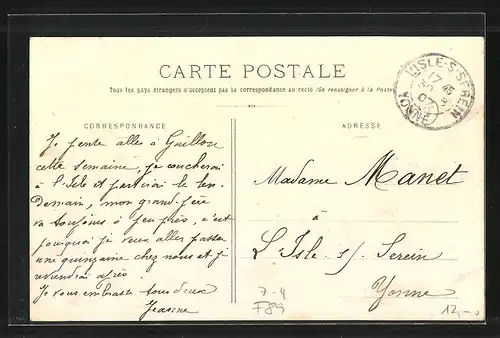 CARTE POSTALE
Tous les pays étrangers n'acceptent pas la correspondance au recto (Se renseigner à la Poste)
CORRESPONDANCE
ADRESSE
L'ISLE-S-SEREIN
17 45
30
07
YONNE
Je pense aller à Guillon
cette semaine, je coucherai
à l'Isle et partirai le len-
Demain, mon grand-père
va toujours à peu près, c'est
pourquoi je veux aller passer
une quinzaine chez nous et je
reviendrai après
Je vous embrasse tous deux
Jeanne
Madame Manet
à
L'Isle s/ Serein
Yonne
7-4
F89
12.-